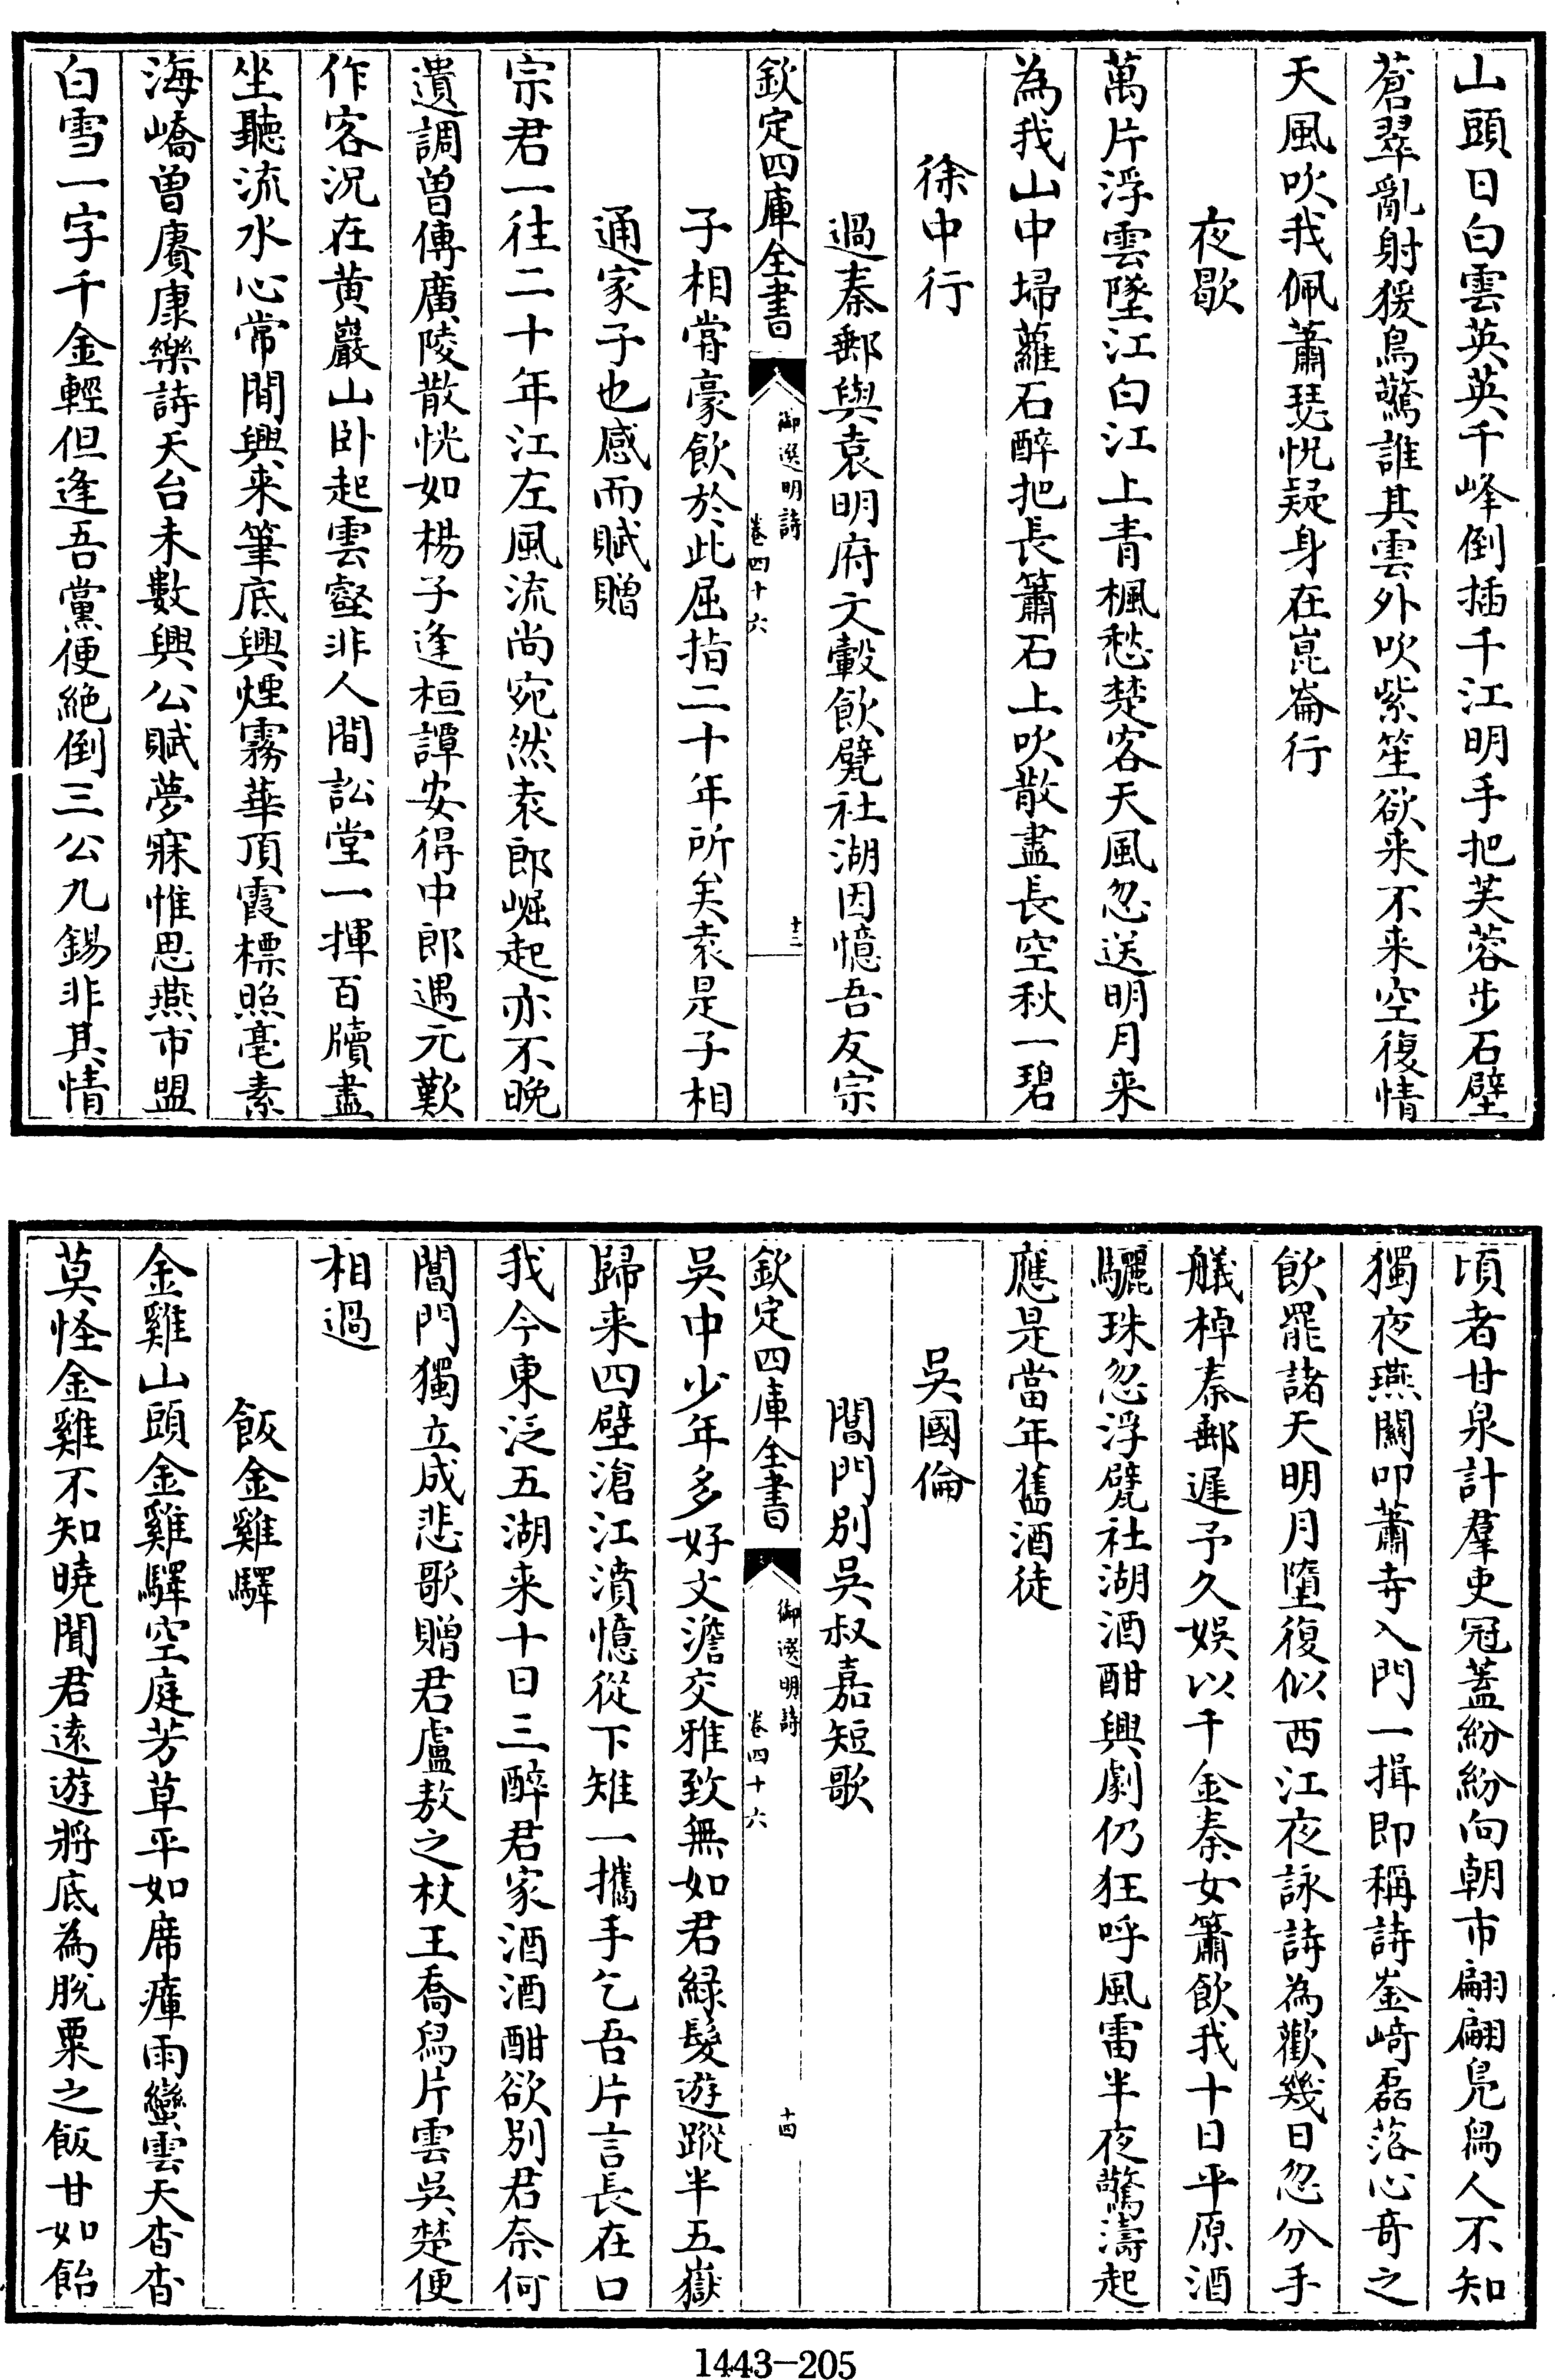 山頭日白雲英英千峰倒插千江明手把芙蓉步石壁
蒼翠亂射猨鳥驚誰其雲外吹紫笙欲来不来空復情
天風吹我佩蕭瑟怳疑身在崑崙行
夜歇
萬片浮雲墜江白江上青楓愁楚客天風忽送明月来
為我山中埽蘿石醉把長簫石上吹散盡長空秋一碧
徐中行
過秦郵與袁明府文轂飲甓社湖因憶吾友宗
欽定四庫全書
御選明詩
卷四十六
十三
子相甞豪飲於此屈指二十年所矣袁是子相
通家子也感而賦贈
宗君一往二十年江左風流尚宛然袁郎崛起亦不晚
遺調曽傳廣陵散恍如楊子逢桓譚安得中郎遇元歎
作客况在黄巖山卧起雲壑非人間訟堂一揮百牘盡
坐聽流水心常閒興来筆底興煙霧華頂霞標照毫素
海嶠曽賡康樂詩天台未數興公賦夢寐惟思燕市盟
白雪一字千金輕但逢吾黨便絶倒三公九錫非其情
頃者甘泉計羣吏冠蓋紛紛向朝市翩翩鳬舄人不知
獨夜燕關叩蕭寺入門一揖即稱詩崟崎磊落心竒之
飲罷諸天明月墮復似西江夜詠詩為歡幾日忽分手
艤棹秦郵遲予久娯以千金秦女簫飲我十日平原酒
驪珠忽浮甓社湖酒酣興劇仍狂呼風雷半夜驚濤起
應是當年舊酒徒
吳國倫
閶門別吳叔嘉短歌
欽定四庫全書
御選明詩
卷四十六
十四
吳中少年多好文澹交雅致無如君緑髮遊蹤半五嶽
歸来四壁滄江濆憶從下雉一攜手乞吾片言長在口
我今東泛五湖来十日三醉君家酒酒酣欲別君奈何
閶門獨立成悲歌贈君盧敖之杖王喬舄片雲吳楚便
相過
飯金雞驛
金雞山頭金雞驛空庭芳草平如席瘴雨蠻雲天杳杳
莫怪金雞不知曉聞君逺遊將底為脫粟之飯甘如飴
1443-205